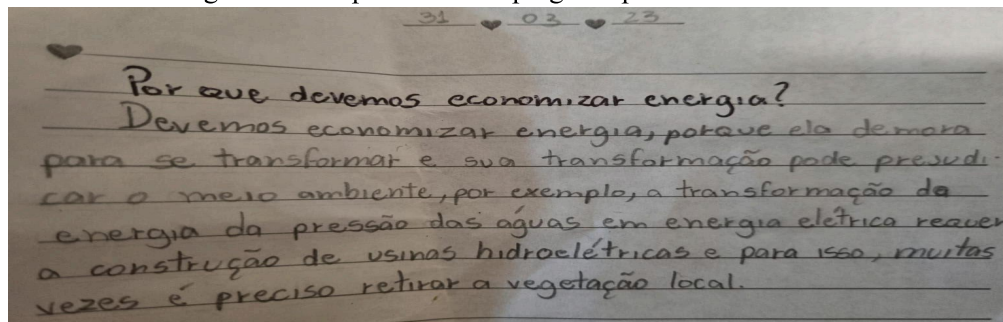 31 03 23
Por que devemos economizar energia?
Devemos economizar energia, porque ela demora
para se transformar e sua transformação pode prejudi-
car o meio ambiente, por exemplo, a transformação da
energia da pressão das águas em energia elétrica requer
a construção de usinas hidroelétricas e para isso, muitas
vezes é preciso retirar a vegetação local.